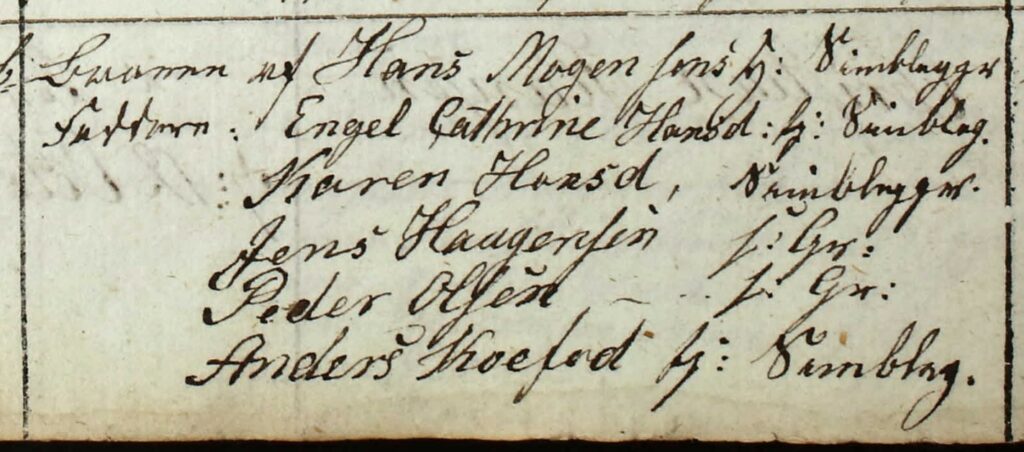 Baaren af Hans Mogensøns H: Simblegger
Faddere: Engel Cathrine Hansd: fj: Simbleg.
: Karen Hansd, Simblegger.
Jens Haagensen s: Gr:
Peder Olsen - .. s: Gr:
Anders Koefod fj: Simbleg.